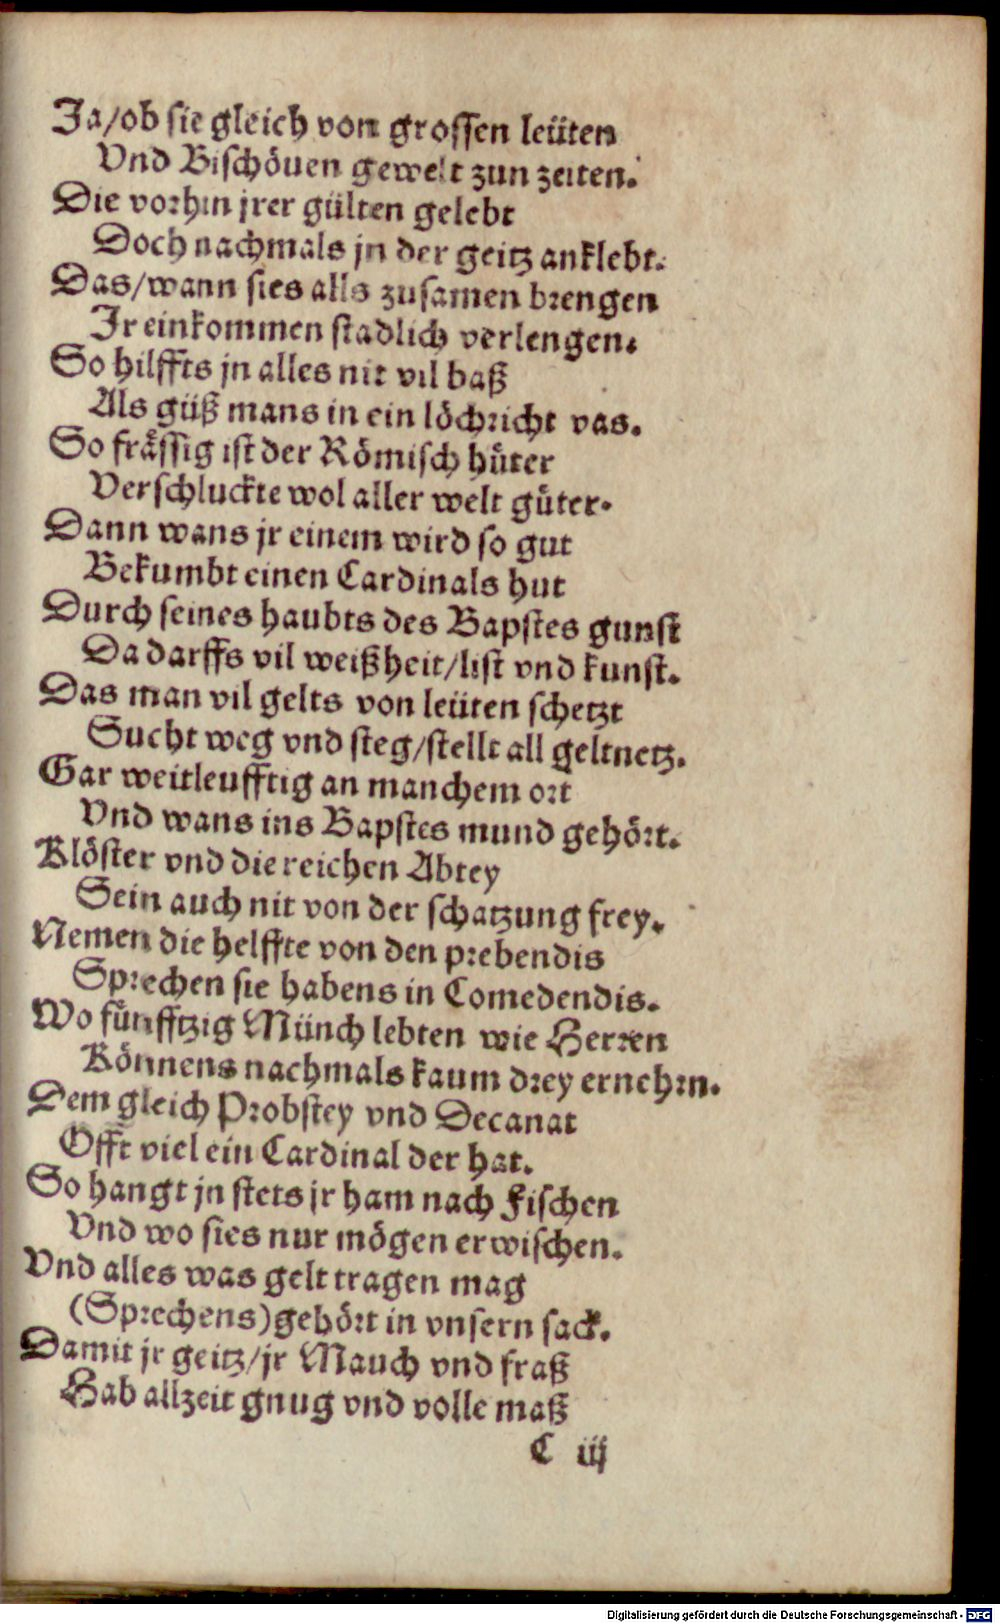 Ja/ob sie gleich von grossen leüten
Vnd Bischöuen gewelt zun zeiten.
Die vorhin jrer gülten gelebt
Doch nachmals jn der geitz anklebt.
Das/wann sies alls zusamen brengen
Jr einkommen stadlich verlengen.
So hilffts jn alles nit vil baß
Als güß mans in ein löchricht vas.
So frässig ist der Römisch hüter
Verschluckte wol aller welt güter.
Dann wans jr einem wird so gut
Bekumbt einen Cardinals hut
Durch seines haubts des Bapstes gunst
Da darffs vil weißheit/list vnd kunst.
Das man vil gelts von leüten schetzt
Sucht weg vnd steg/stellt all geltnetz.
Gar weitleufftig an manchem ort
Vnd wans ins Bapstes mund gehört.
Klöster vnd die reichen Abtey
Sein auch nit von der schatzung frey.
Nemen die helffte von den prebendis
Sprechen sie habens in Comedendis.
Wo fünfftzig Münch lebten wie Herren
Können​s nachmals kaum drey ernehrn.
Dem gleich Probstey vnd Decanat
Offt viel ein Cardinal der hat.
So hangt jn stets jr ham nach Fischen
Vnd wo sies nur mögen erwischen.
Vnd alles was gelt tragen mag
(Sprechens)gehört in vnsern sack.
Damit jr geitz/jr Mauch vnd fraß
Hab allzeit gnug vnd volle maß
C iij
Digitalisierung gefördert durch die Deutsche Forschungsgemeinschaft - DFG